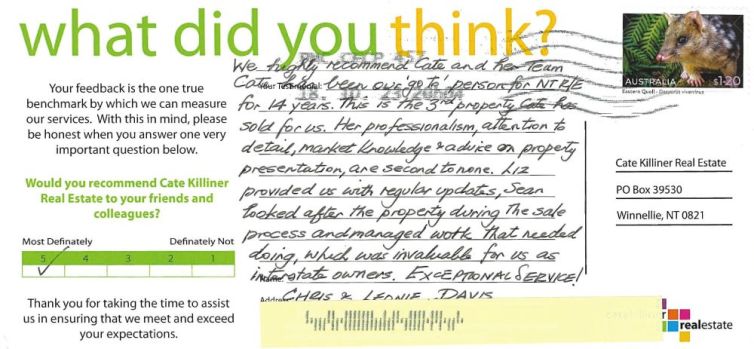 what did you think?
Your feedback is the one true
benchmark by which we can measure
our services. With this in mind, please
be honest when you answer one very
important question below.
Would you recommend Cate Killiner
Real Estate to your friends and
colleagues?
Most Definately Definately Not
5 4 3 2 1
Thank you for taking the time to assist
us in ensuring that we meet and exceed
your expectations.
Your Testimonial:
We highly recommend Cate and her Team
Cate has been our 'go to' person for NT R/E
for 14 years. This is the 3rd property Cate has
sold for us. Her professionalism, attention to
detail, market knowledge & advice on property
presentation, are second to none. Liz
provided us with regular updates, Sean
looked after the property during the sale
process and managed work that needed
doing, which was invaluable for us as
interstate owners. EXCEPTIONAL SERVICE!
Name:
CHRIS & LEONIE DAVIS
Address
AUSTRALIA $1.20
Eastern Quoll - Dasyurus viverrinus
Cate Killiner Real Estate
PO Box 39530
Winnellie, NT 0821
realestate